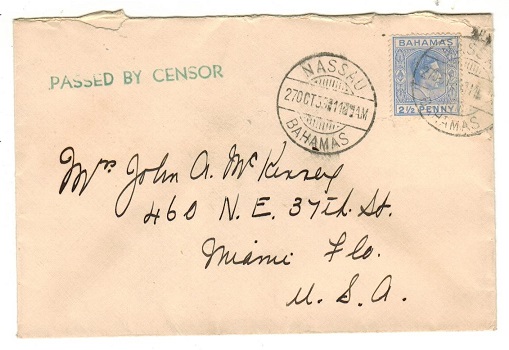 PASSED BY CENSOR
NASSAU
27 OCT 39 11 AM
BAHAMAS
BAHAMAS
2½ PENNY
Mrs John A. McKinsey
460 N.E. 37th. St.
Miami Fla.
U.S.A.